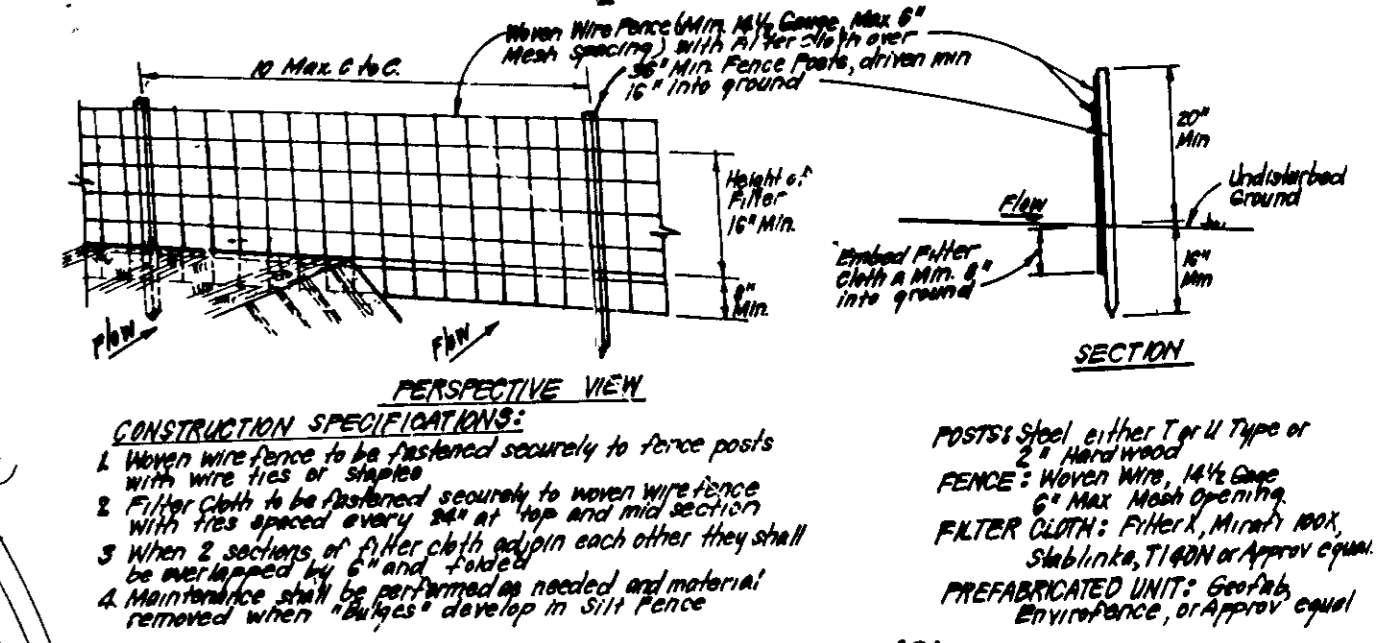 Woven Wire Fence (Min. 14½ Gauge, Max 6"
Mesh spacing) with Filter cloth over
36" Min. Fence Posts, driven min
16" into ground
10 Max C to C.
Height of
Filter
16" Min.
Min.
Flow
Flow
PERSPECTIVE VIEW
20"
Min
Undisturbed
Ground
Flow
Embed Filter
Cloth a Min. 8"
into ground
16"
Min
SECTION
CONSTRUCTION SPECIFICATIONS:
1. Woven wire fence to be fastened securely to fence posts
with wire ties or staples
2 Filter Cloth to be fastened securely to woven wire fence
with ties spaced every 24" at top and mid section
3 When 2 sections of filter cloth adjoin each other they shall
be overlapped by 6" and folded
4. Maintenance shall be performed as needed and material
removed when "Bulges" develop in Silt Fence
POSTS: Steel either T or U Type or
2" Hardwood
FENCE: Woven Wire, 14½ Gage
6" Max Mesh Opening
FILTER CLOTH: Filter X, Mirafi 100X,
Stablinka, T140N or Approv equal
PREFABRICATED UNIT: Geofab,
Envirofence, or Approv equal